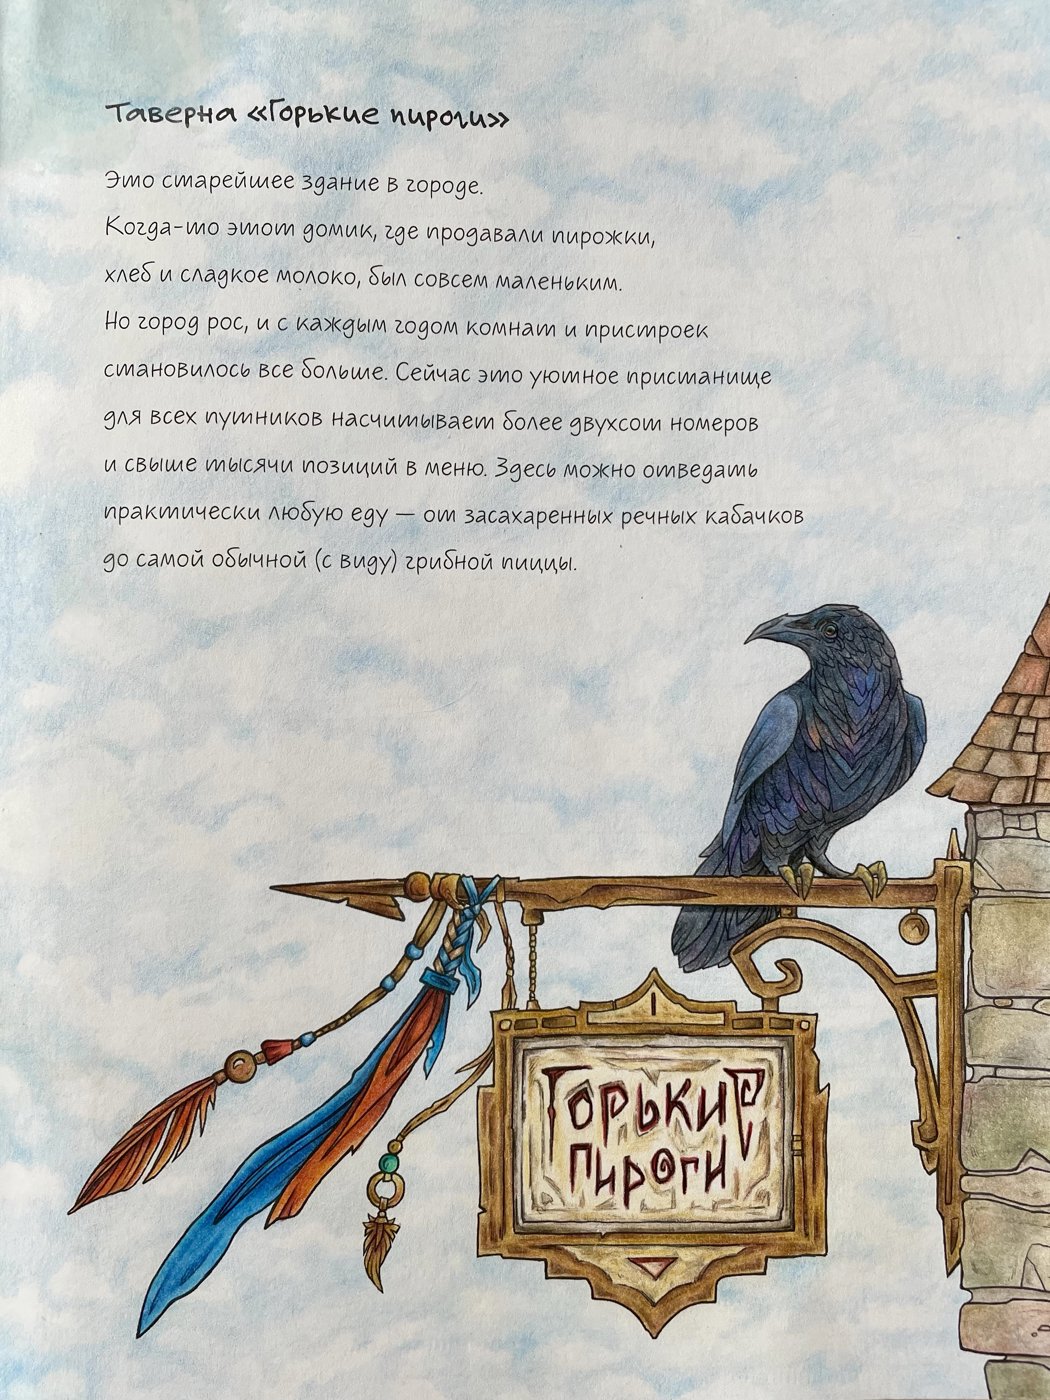 Таверна «Горькие пироги»
Это старейшее здание в городе.
Когда-то этот домик, где продавали пирожки,
хлеб и сладкое молоко, был совсем маленьким.
Но город рос, и с каждым годом комнат и пристроек
становилось все больше. Сейчас это уютное пристанище
для всех путников насчитывает более двухсот номеров
и свыше тысячи позиций в меню. Здесь можно отведать
практически любую еду — от засахаренных речных кабачков
до самой обычной (с виду) грибной пиццы.
ГОРЬКИЕ
ПИРОГИ